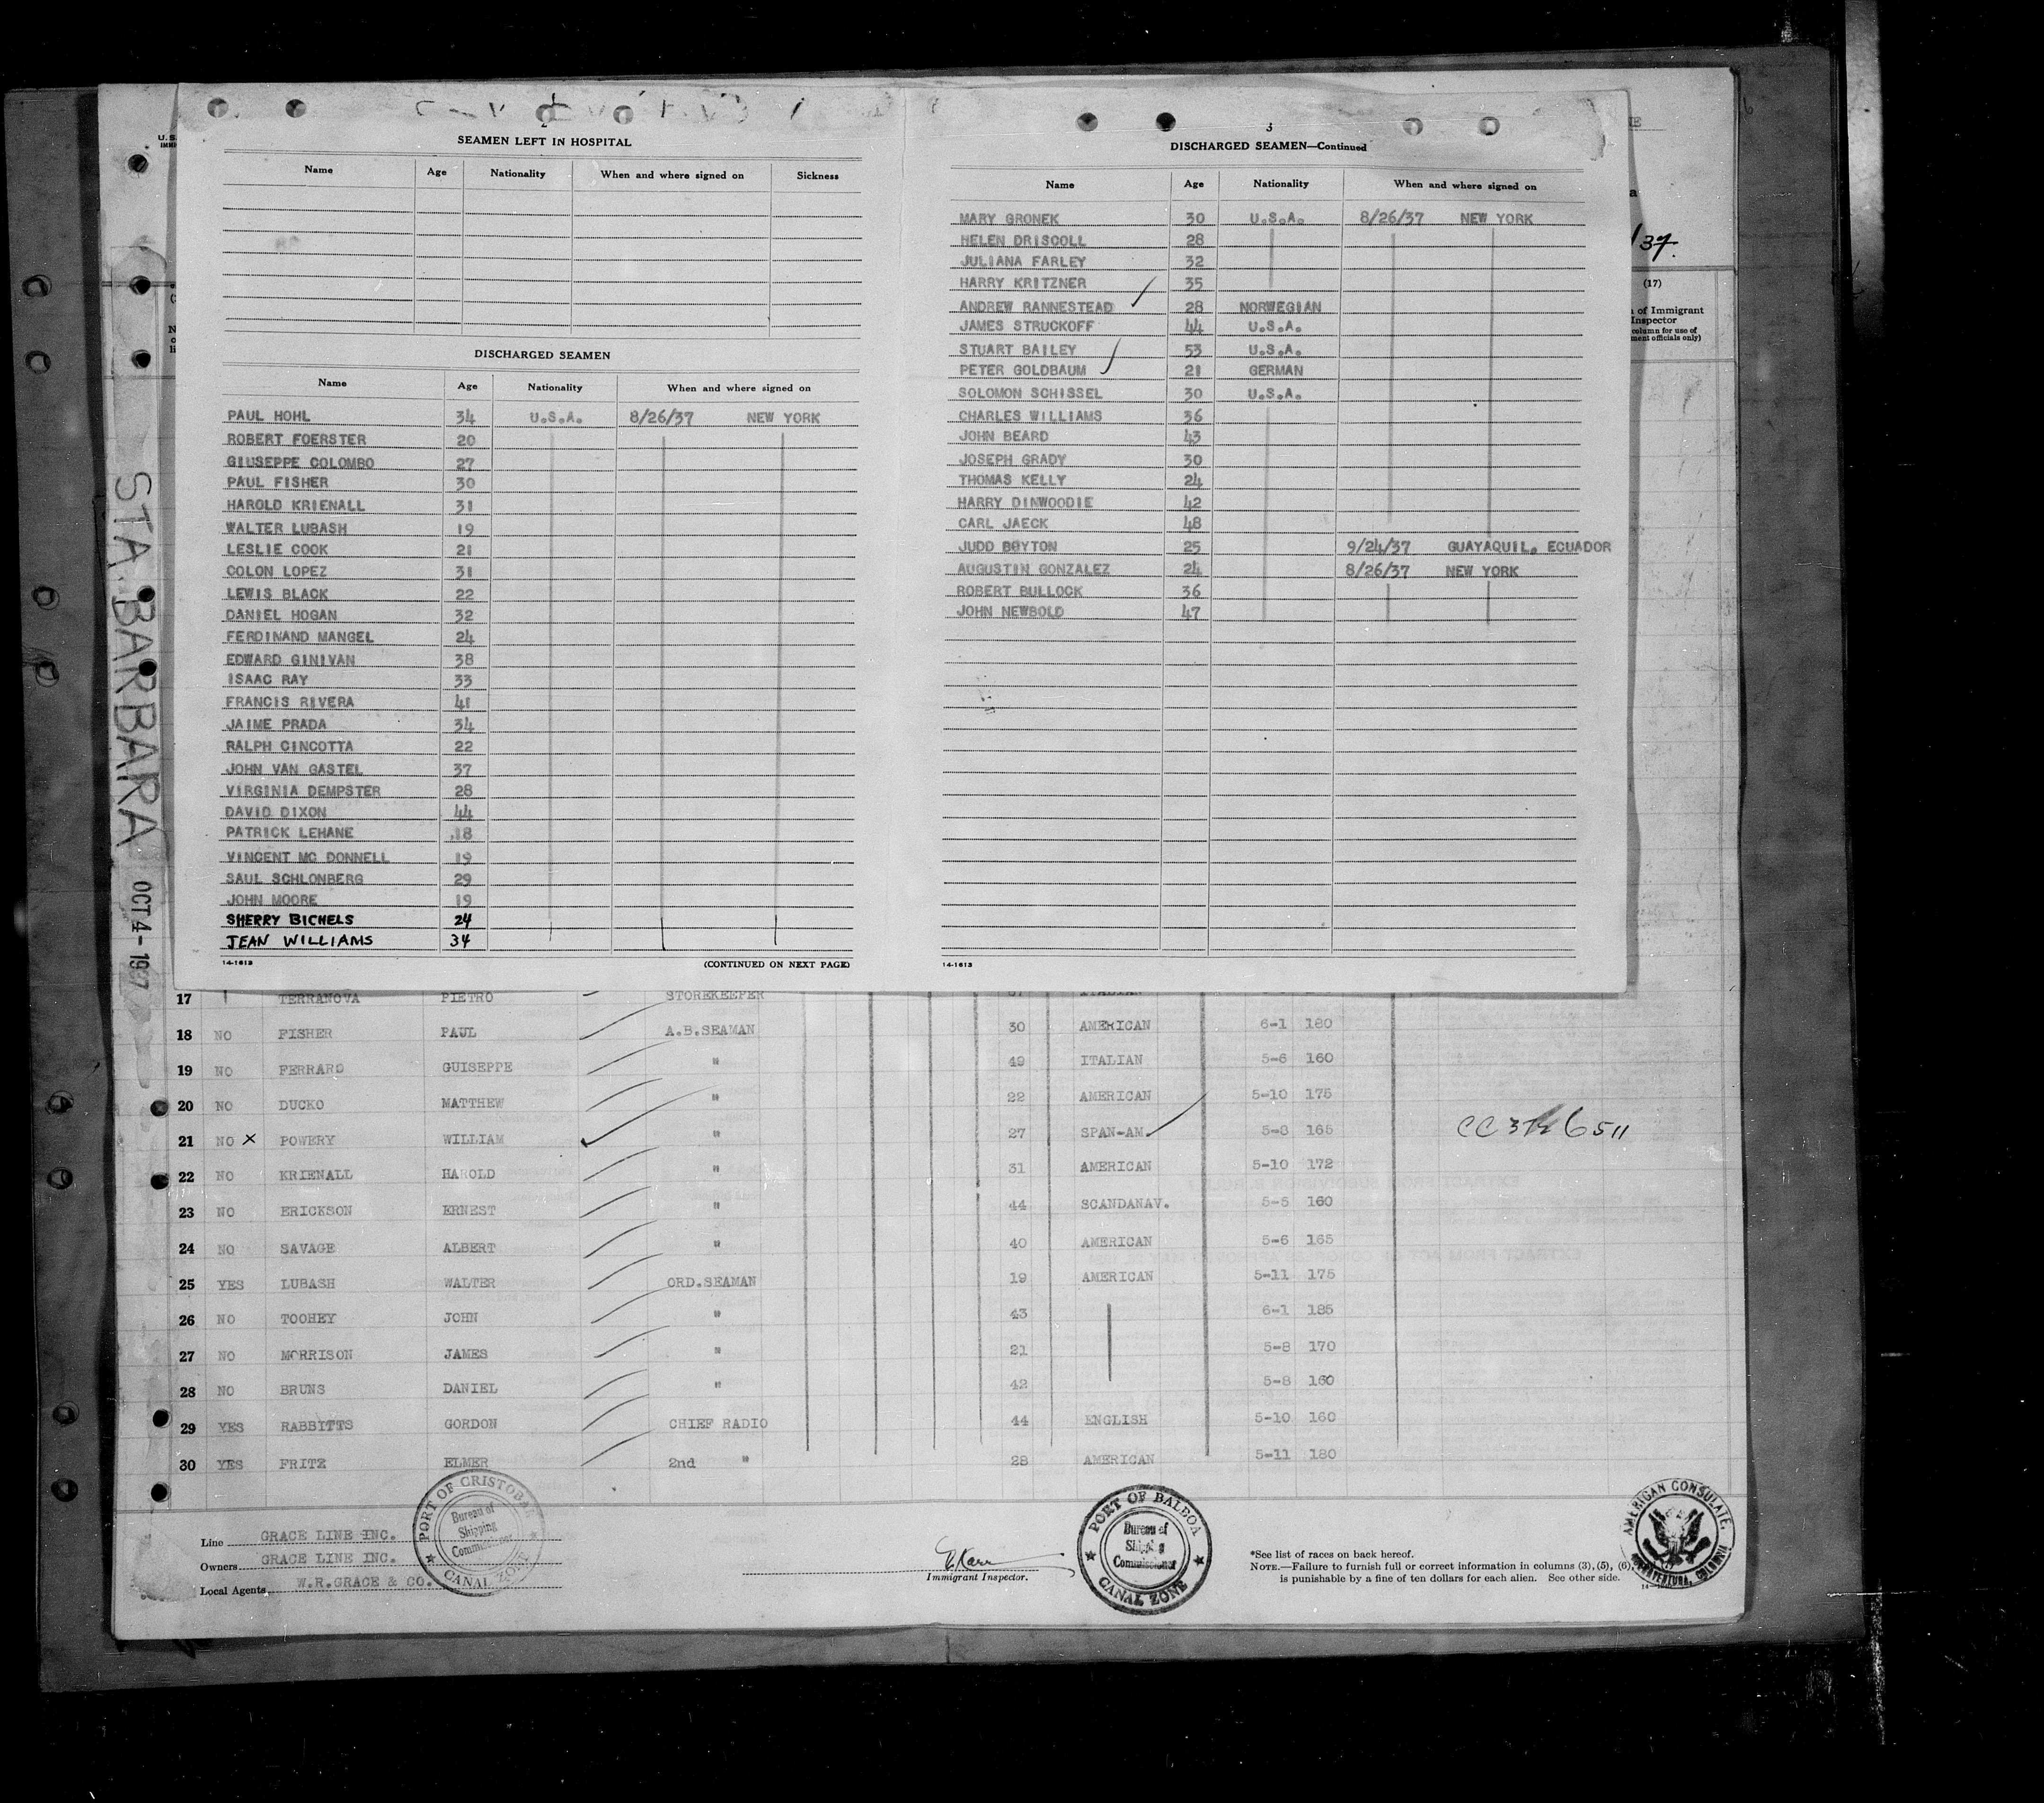 2
SEAMEN LEFT IN HOSPITAL
Name Age Nationality When and where signed on Sickness
DISCHARGED SEAMEN
Name Age Nationality When and where signed on
PAUL HOHL 34 U.S.A. 8/26/37 NEW YORK
ROBERT FOERSTER 20
GIUSEPPE COLOMBO 27
PAUL FISHER 30
HAROLD KRIENALL 31
WALTER LUBASH 19
LESLIE COOK 21
COLON LOPEZ 31
LEWIS BLACK 22
DANIEL HOGAN 32
FERDINAND MANGEL 24
EDWARD GINIVAN 38
ISAAC RAY 33
FRANCIS RIVERA 41
JAIME PRADA 34
RALPH CINCOTTA 22
JOHN VAN GASTEL 37
VIRGINIA DEMPSTER 28
DAVID DIXON 44
PATRICK LEHANE 18
VINCENT MC DONNELL 19
SAUL SCHLONBERG 29
JOHN MOORE 19
SHERRY BICHELS 24
JEAN WILLIAMS 34
14-1613 (CONTINUED ON NEXT PAGE)
3
DISCHARGED SEAMEN—Continued
Name Age Nationality When and where signed on
MARY GRONEK 30 U.S.A. 8/26/37 NEW YORK
HELEN DRISCOLL 28
JULIANA FARLEY 32
HARRY KRITZNER 35
ANDREW RANNESTEAD 28 NORWEGIAN
JAMES STRUCKOFF 44 U.S.A.
STUART BAILEY 53 U.S.A.
PETER GOLDBAUM 21 GERMAN
SOLOMON SCHISSEL 30 U.S.A.
CHARLES WILLIAMS 36
JOHN BEARD 43
JOSEPH GRADY 30
THOMAS KELLY 24
HARRY DINWOODIE 42
CARL JAECK 48
JUDD BOYTON 25 9/24/37 GUAYAQUIL, ECUADOR
AUGUSTIN GONZALEZ 24 8/26/37 NEW YORK
ROBERT BULLOCK 36
JOHN NEWBOLD 47
14-1613
37.
(17)
of Immigrant
Inspector
column for use of
ment officials only)
STA. BARBARA
OCT 4-1937
17 TERRANOVA PIETRO STOREKEEPER ITALIAN
18 NO FISHER PAUL A.B.SEAMAN 30 AMERICAN 6-1 180
19 NO FERRARO GUISEPPE " 49 ITALIAN 5-6 160
20 NO DUCKO MATTHEW " 22 AMERICAN 5-10 175
21 NO X POWERY WILLIAM " 27 SPAN-AM 5-8 165
22 NO KRIENALL HAROLD " 31 AMERICAN 5-10 172
23 NO ERICKSON ERNEST " 44 SCANDANAV. 5-5 160
24 NO SAVAGE ALBERT " 40 AMERICAN 5-6 165
25 YES LUBASH WALTER ORD.SEAMAN 19 AMERICAN 5-11 175
26 NO TOOHEY JOHN " 43 6-1 185
27 NO MORRISON JAMES " 21 5-8 170
28 NO BRUNS DANIEL " 42 5-8 160
29 YES RABBITTS GORDON CHIEF RADIO 44 ENGLISH 5-10 160
30 YES FRITZ ELMER 2nd " 28 AMERICAN 5-11 180
Line GRACE LINE INC.
Owners GRACE LINE INC.
Local Agents W.R.GRACE & CO.
PORT OF CRISTOBAL
Bureau of
Shipping
Commissioner
CANAL ZONE
Immigrant Inspector.
PORT OF BALBOA
Bureau of
Shipping
Commissioner
CANAL ZONE
*See list of races on back hereof.
NOTE.—Failure to furnish full or correct information in columns (3), (5), (6),
is punishable by a fine of ten dollars for each alien. See other side.
AMERICAN CONSULATE,
BUENAVENTURA, COLOMBIA